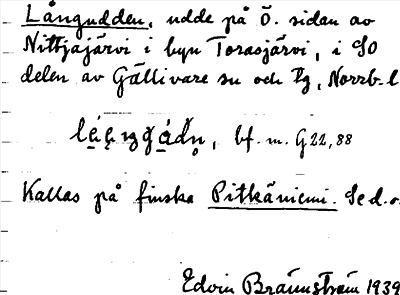 Långudden, udde på Ö. sidan av
Nittjajärvi i byn Torasjärvi, i SO
delen av Gällivare sn och tg, Norrb. l
bf. m. G22,88
Kallas på finska Pitkäniemi. Se d.o.
Edvin Brännström 1939